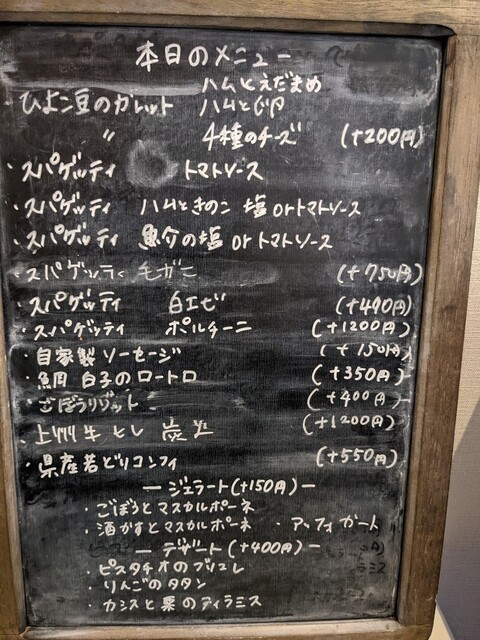 本日のメニュー
ハムとえだまめ
・ひよこ豆のガレット ハムと
〃 4種のチーズ (+200円)
・スパゲッティ トマトソース
・スパゲッティ ハムときのこ 塩orトマトソース
・スパゲッティ 魚介の塩orトマトソース
・スパゲッティ 毛ガニ (+750円)
・スパゲッティ 白エビ (+400円)
・スパゲッティ ポルチーニ (+1200円)
・自家製ソーセージ (+150円)
・鯛 白子のロートロ (+350円)
・ごぼうリゾット (+400円)
・上州牛ヒレ 炭 (+1200円)
・県産若どりコンフィ (+550円)
ージェラート(+150円)ー
・ごぼうとマスカルポーネ
・酒かすとマスカルポーネ ・アッフォガート
ーデザート(+400円)ー
・ピスタチオのブリュレ
・りんごのタタン
・カシスと栗のティラミス